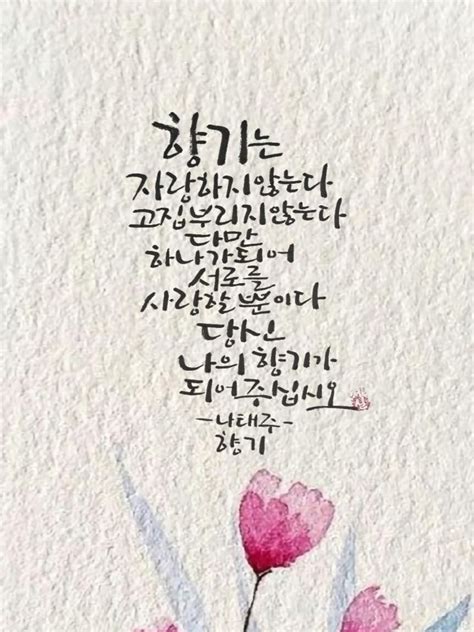 향기는
자랑하지않는다
고집부리지않는다
다만
하나가되어
서로를
사랑할뿐이다
당신
나의향기가
되어주십시오
-나태주-
향기